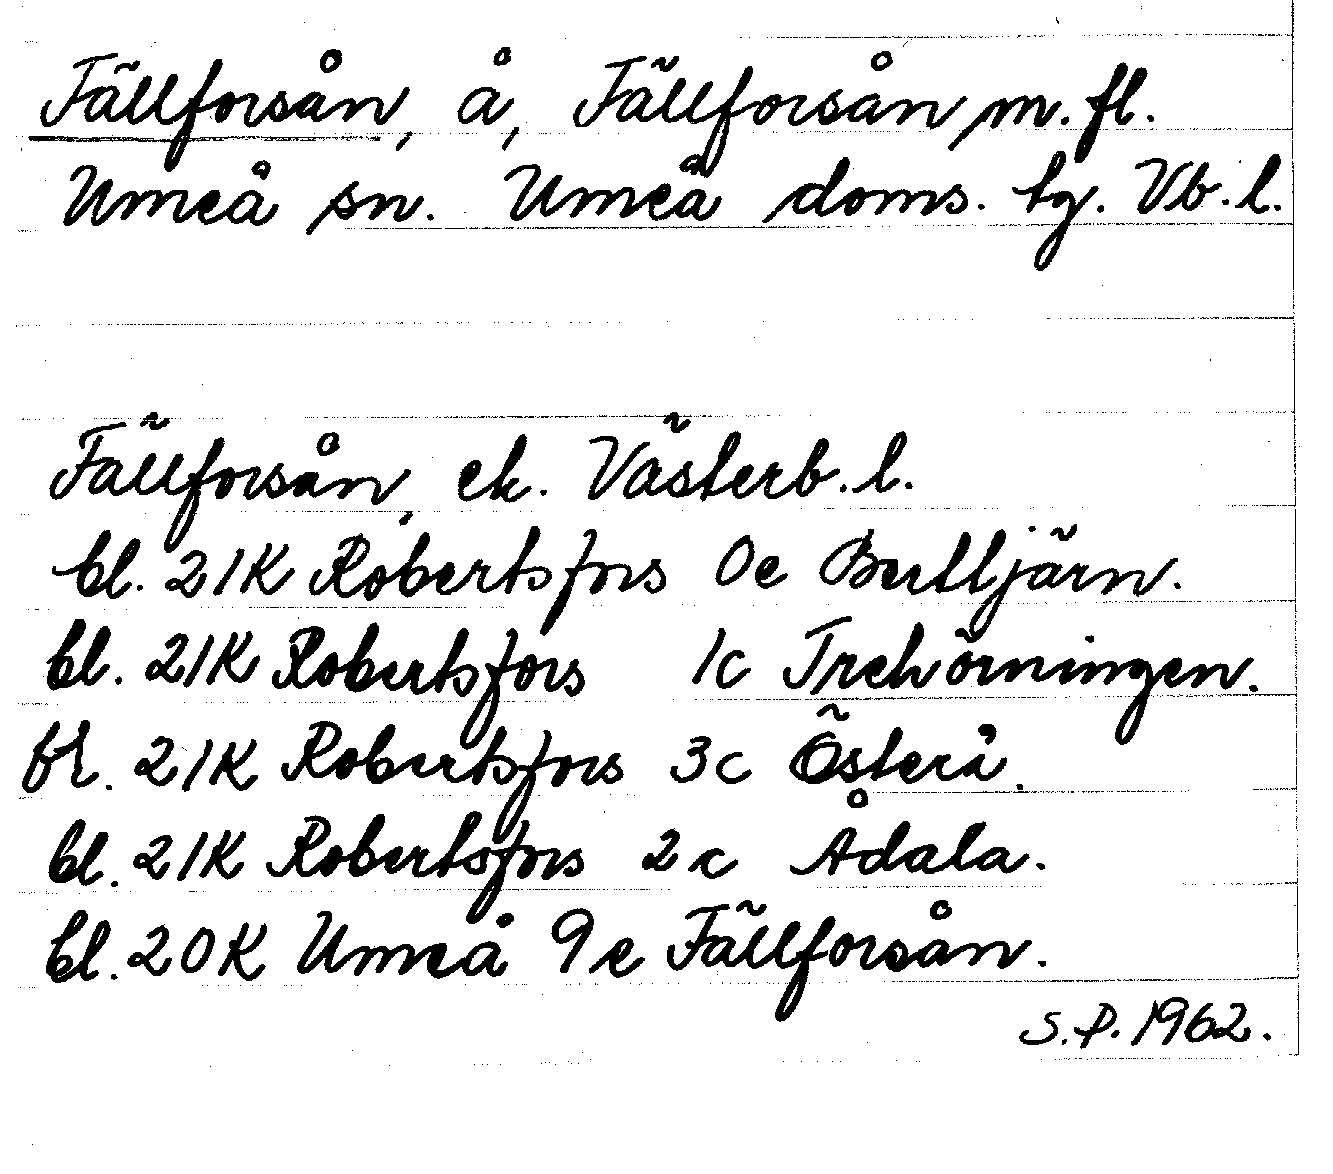 Fällforsån, å, Fällforsån, m.fl.
Umeå sn. Umeå doms. tg. Vb.l.
Fällforsån, ek. Västerb.l.
bl. 21K Robertsfors 0e Bertljärn.
bl. 21K Robertsfors 1c Trehörningen.
bl. 21K Robertsfors 3c Österå.
bl. 21K Robertsfors 2c Ådala.
bl. 20K Umeå 9e Fällforsån.
S.P. 1962.